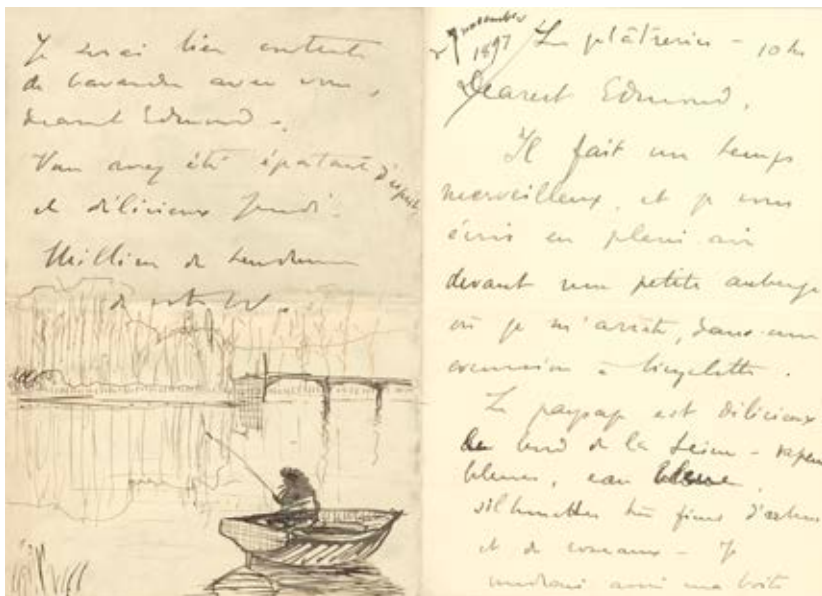 Je serai bien contente
de bavarder avec vous,
dearest Edmond.
Vous avez été épatant d'esprit
et délicieux jeudi.
Million de tendresses
de votre W.
7 november
1897
La plâtrerie - 10 hs
Dearest Edmond,
Il fait un temps
merveilleux, et je vous
écris en plein air
devant une petite auberge
où je m'arrête, dans une
excursion à bicyclette.
Le paysage est délicieux
bord de la Seine - vapeurs
bleues, eau bleue,
silhouettes très fines d'arbres
et de roseaux - Je
voudrais avoir ma boîte